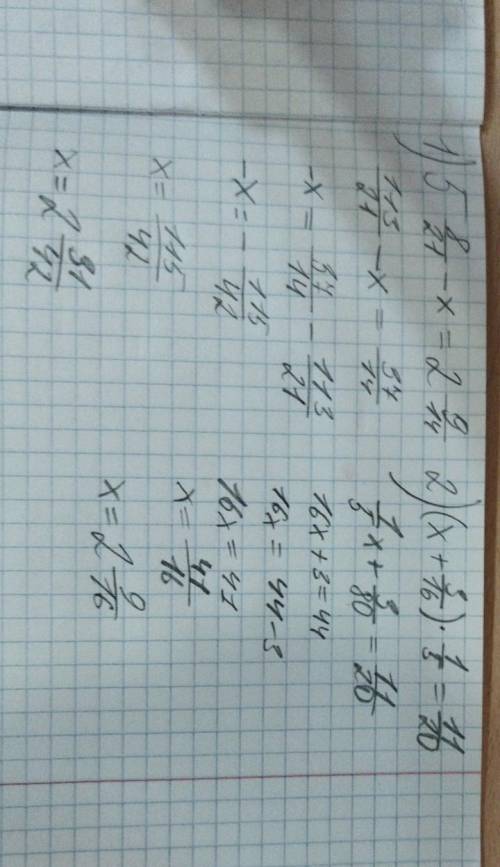 1) 5 8/21 - x = 2 9/14
113/21 - x = 37/14
-x = 37/14 - 113/21
-x = - 115/42
x = 115/42
x = 2 31/42
2) (x + 3/16) · 1/5 = 11/20
1/5 x + 3/80 = 11/20
16x + 3 = 44
16x = 44 - 3
16x = 41
x = 41/16
x = 2 9/16